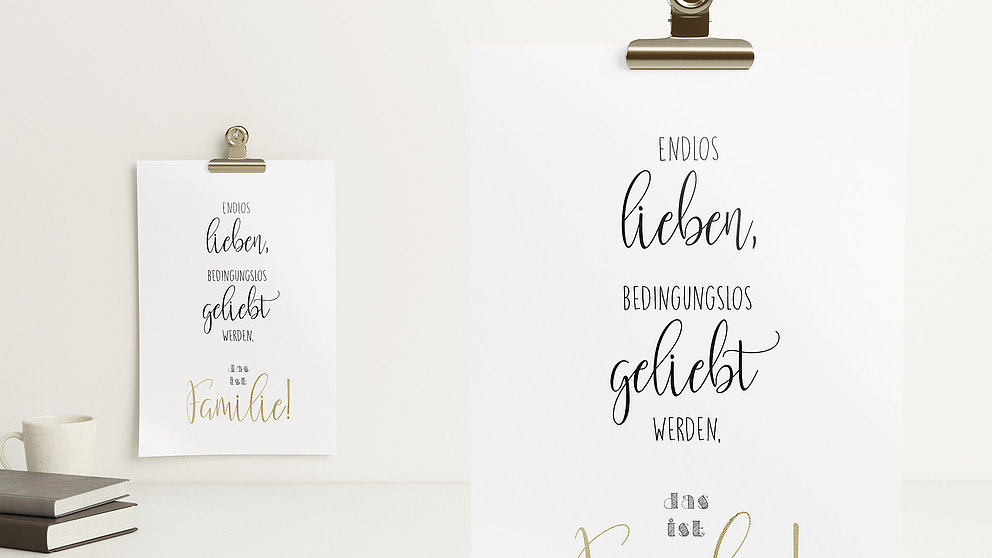 ENDLOS
lieben,
BEDINGUNGSLOS
geliebt
WERDEN,
das
ist
Familie!
ENDLOS
lieben,
BEDINGUNGSLOS
geliebt
WERDEN,
das
ist
Familie!